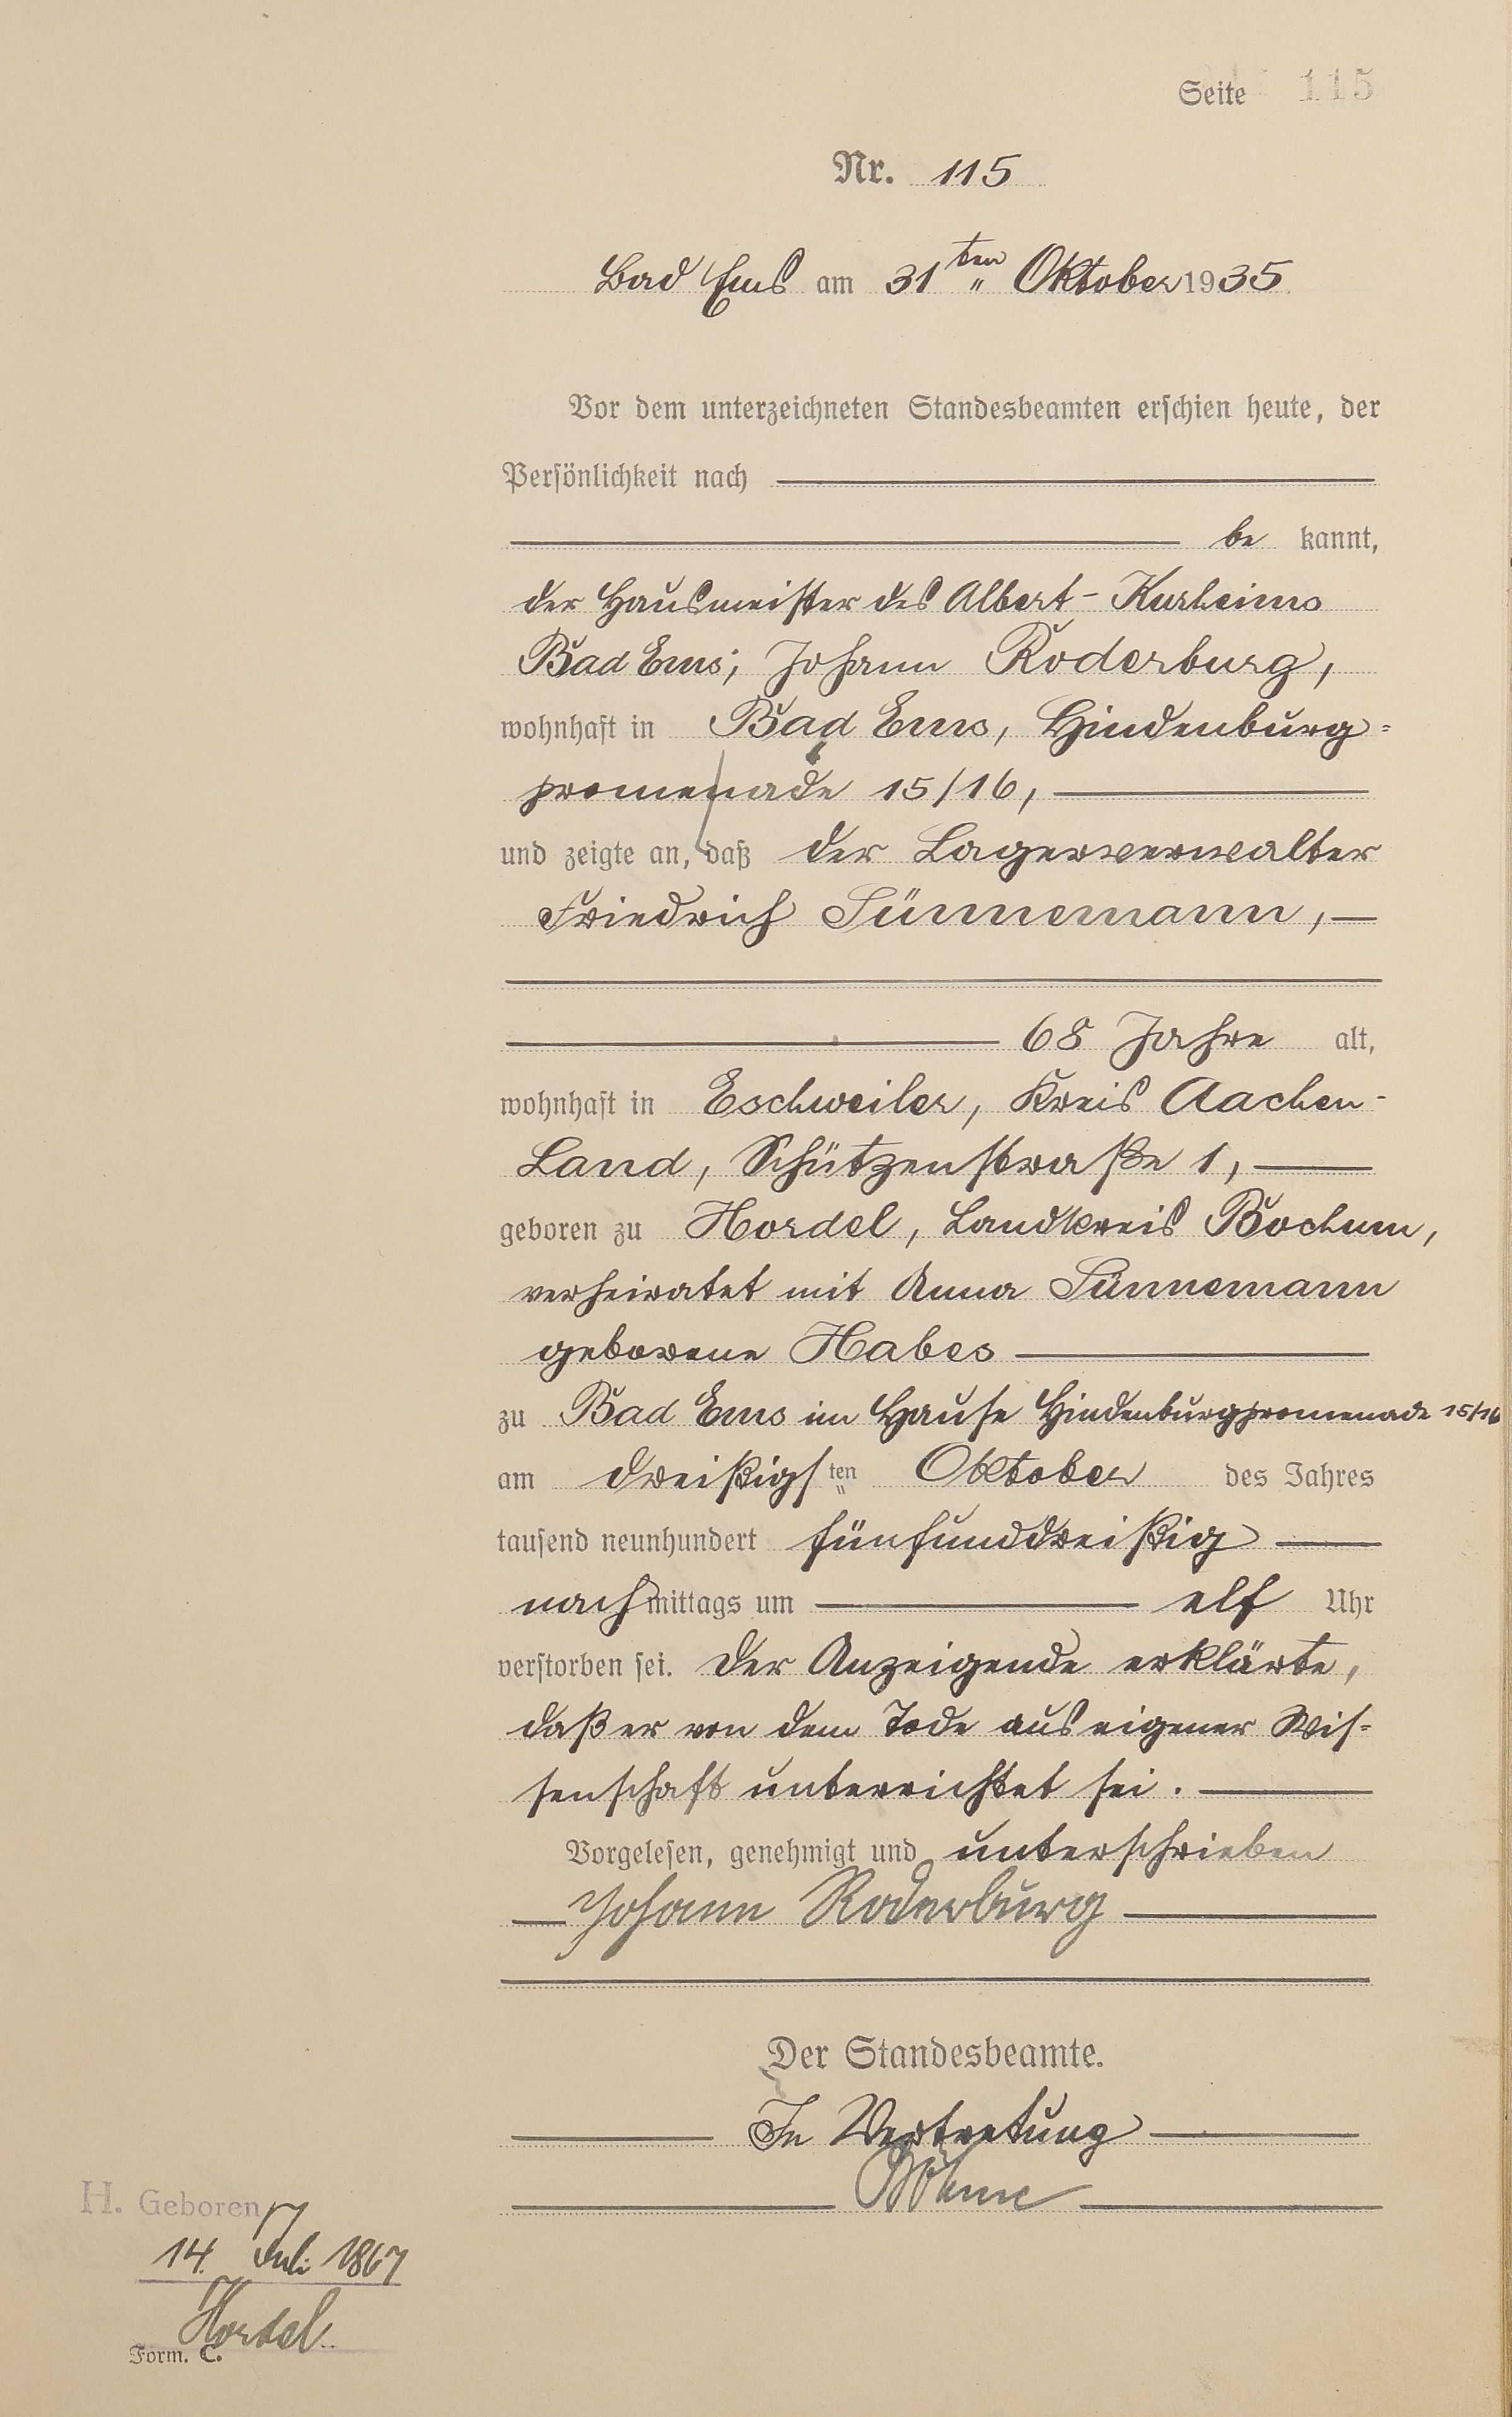 Seite 115
Nr. 115
Bad Ems am 31ten Oktober 1935.
Vor dem unterzeichneten Standesbeamten erschien heute, der
Persönlichkeit nach
be kannt,
der Hausmeister des Albert-Kurheims
Bad Ems, Johann Roderburg,
wohnhaft in Bad Ems, Hindenburg=
promenade 15/16,
und zeigte an, daß der Lagerverwalter
Friedrich Sünnemann,
68 Jahre alt,
wohnhaft in Eschweiler, Kreis Aachen-
Land, Schützenstraße 1,
geboren zu Hordel, Landkreis Bochum,
verheiratet mit Anna Sünnemann
geborene Habes
zu Bad Ems im Hause Hindenburgpromenade 15/16
am dreißigsten Oktober des Jahres
tausend neunhundert fünfunddreißig
nachmittags um elf Uhr
verstorben sei. Der Anzeigende erklärte,
daß er von dem Tode aus eigener Wis=
senschaft unterrichtet sei.
Vorgelesen, genehmigt und unterschrieben
Johann Roderburg
Der Standesbeamte.
In Vertretung
H. Geboren
14. Juli 1867
Hordel
Form. C.